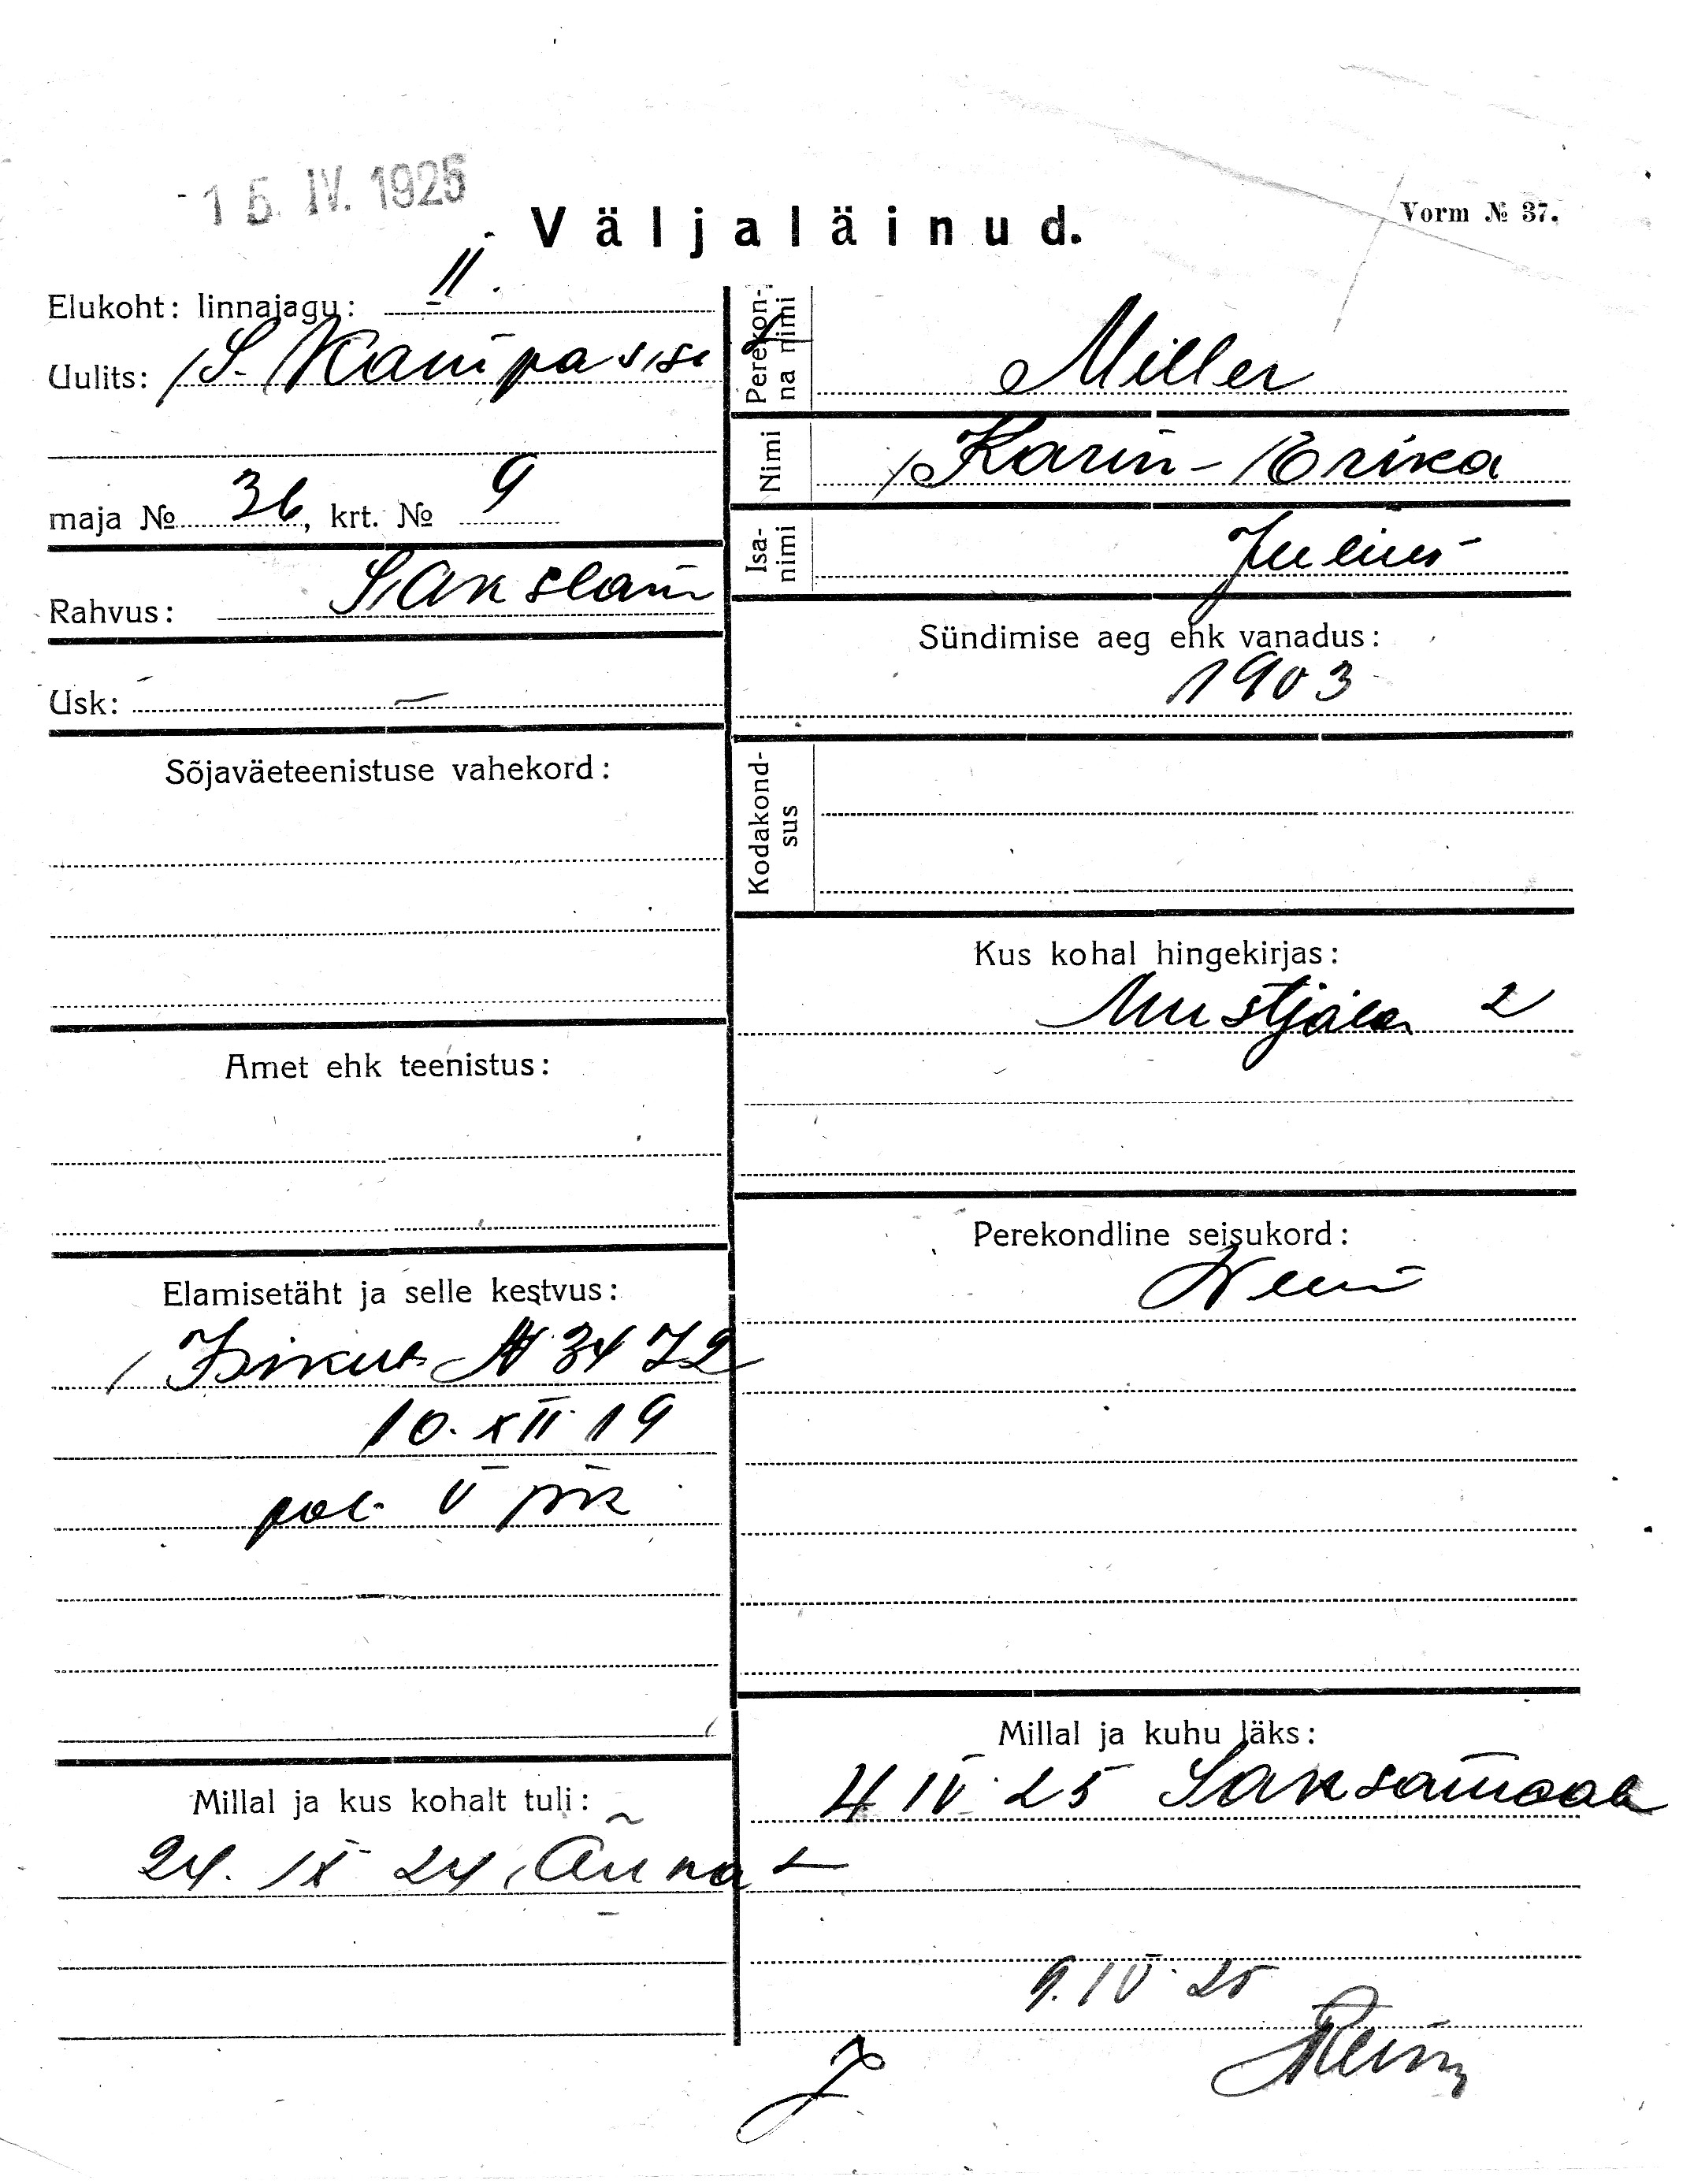 15. IV. 1925
Väljaläinud.
Vorm № 37.
Elukoht: linnajagu: II.
Uulits: S. Kam
maja № 36, krt. № 9
Rahvus: Sakslan
Usk: —
Sõjaväeteenistuse vahekord:
Amet ehk teenistus:
Elamisetäht ja selle kestvus:
N 3472
10. XII 19
pol. V
Millal ja kus kohalt tuli:
24. IX 24
Perekon-
na nimi
Miller
Nimi
Karin-Erika
Isa-
nimi
Julius
Sündimise aeg ehk vanadus:
1903
Kodakond-
sus
Kus kohal hingekirjas:
Mustjala 2
Perekondline seisukord:
Millal ja kuhu läks:
4 IV 25 Saksamaale
9. IV 25